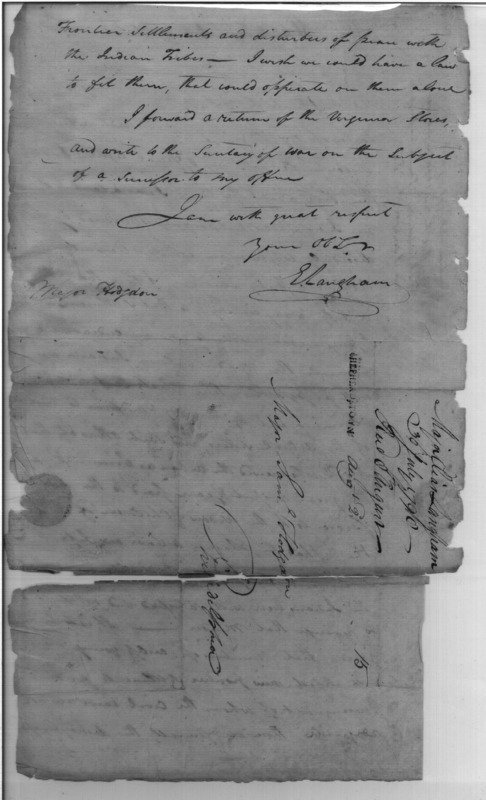 Frontier Settlements and disturbers of peace with
the Indian Tribes — I wish we could have a law
to fit them, that could opperate on them alone
I forward a return of the Virginia Stores,
and write to the Secretary of war on the Subject
of a Successor to my office
I am with great respect
Your Obt
E Langham
Major Hodgdon
Major Saml Hodgdon
Philadelphia
Aug
15
Major Langham
30 July 1793